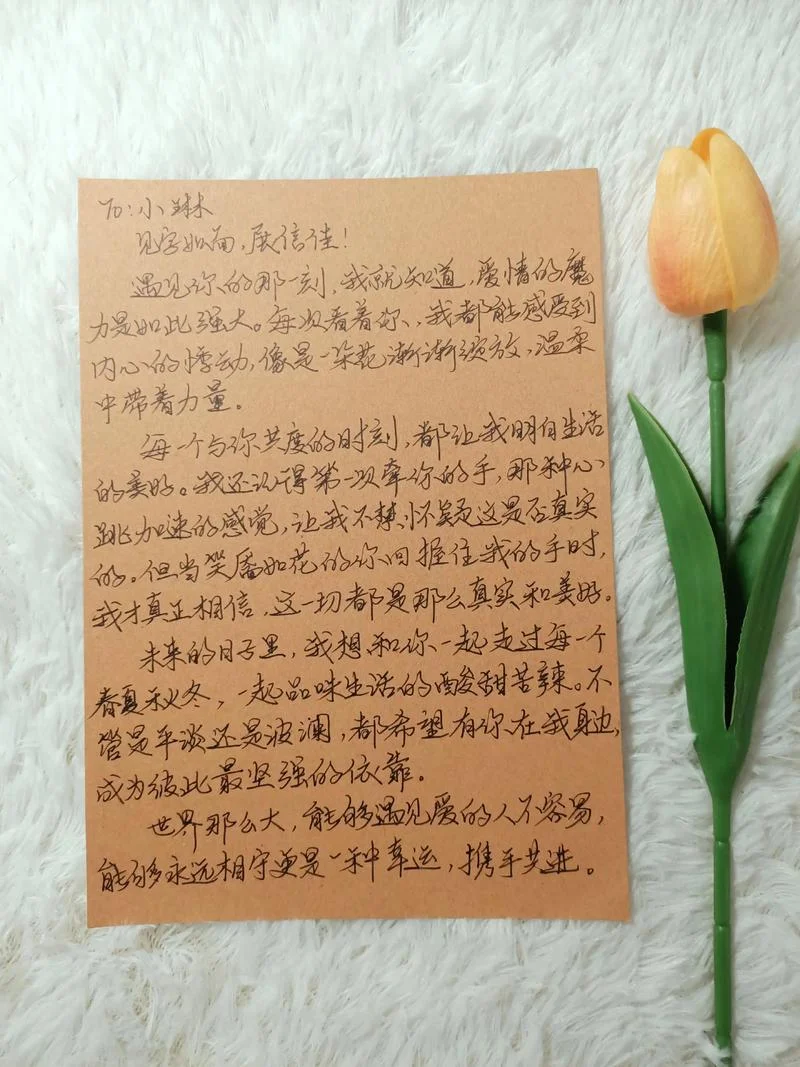 To: 小琳
见字如面，展信佳！
遇见你的那一刻，我就知道，爱情的魔
力是如此强大。每次看着你，我都能感受到
内心的悸动，像是一朵花渐渐绽放，温柔
中带着力量。
每一个与你共度的时刻，都让我明白生活
的美好。我还记得第一次牵你的手，那种心
跳加速的感觉，让我不禁怀疑这是否真实
的。但当笑靥如花的你回握住我的手时，
我才真正相信，这一切都是那么真实和美好。
未来的日子里，我想和你一起走过每一个
春夏秋冬，一起品味生活的酸甜苦辣。不
管是平淡还是波澜，都希望有你在我身边，
成为彼此最坚强的依靠。
世界那么大，能够遇见爱的人不容易，
能够永远相守更是一种幸运，携手共进。